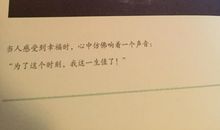 当人感受到幸福时，心中仿佛响着一个声音：
“为了这个时刻，我这一生值了！”